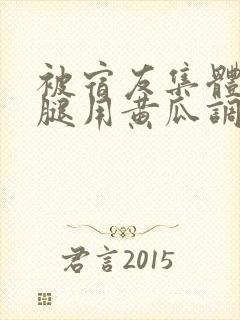 被宿友集體
腿用黄瓜調
君言2015